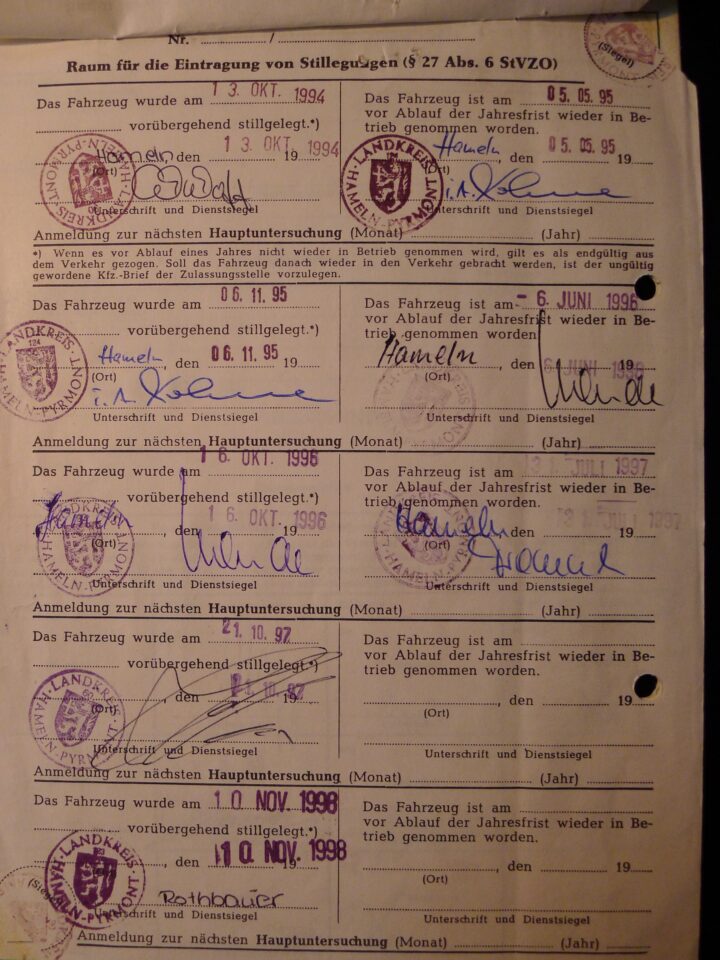 Nr. ............ / ............
(Siegel)
Raum für die Eintragung von Stillegungen (§ 27 Abs. 6 StVZO)
Das Fahrzeug wurde am 13. OKT. 1994
vorübergehend stillgelegt.*)
Hameln, den 13. OKT. 1994 19
(Ort)
Unterschrift und Dienstsiegel
LANDKREIS HAMELN-PYRMONT
Das Fahrzeug ist am 05.05.95
vor Ablauf der Jahresfrist wieder in Be-
trieb genommen worden.
Hameln, den 05.05.95 19
(Ort)
i.A.
Unterschrift und Dienstsiegel
LANDKREIS HAMELN-PYRMONT
Anmeldung zur nächsten Hauptuntersuchung (Monat) ............ (Jahr) ............
*) Wenn es vor Ablauf eines Jahres nicht wieder in Betrieb genommen wird, gilt es als endgültig aus
dem Verkehr gezogen. Soll das Fahrzeug danach wieder in den Verkehr gebracht werden, ist der ungültig
gewordene Kfz.-Brief der Zulassungsstelle vorzulegen.
Das Fahrzeug wurde am 06.11.95
vorübergehend stillgelegt.*)
Hameln, den 06.11.95 19
(Ort)
i.A.
Unterschrift und Dienstsiegel
LANDKREIS 124 HAMELN-PYRMONT
Das Fahrzeug ist am - 6. JUNI 1996
vor Ablauf der Jahresfrist wieder in Be-
trieb genommen worden.
Hameln, den 6. JUNI 1996 19
(Ort)
Unterschrift und Dienstsiegel
Anmeldung zur nächsten Hauptuntersuchung (Monat) ............ (Jahr) ............
Das Fahrzeug wurde am 16. OKT. 1996
vorübergehend stillgelegt.*)
Hameln, den 16. OKT. 1996 19
(Ort)
Unterschrift und Dienstsiegel
HAMELN-PYRMONT
Das Fahrzeug ist am JULI 1997
vor Ablauf der Jahresfrist wieder in Be-
trieb genommen worden.
Hameln, den JULI 1997 19
(Ort)
Unterschrift und Dienstsiegel
HAMELN-PYRMONT
Anmeldung zur nächsten Hauptuntersuchung (Monat) ............ (Jahr) ............
Das Fahrzeug wurde am 21.10.97
vorübergehend stillgelegt.*)
, den 21.10.97
(Ort)
Unterschrift und Dienstsiegel
LANDKREIS HAMELN-PYRMONT
Das Fahrzeug ist am ............
vor Ablauf der Jahresfrist wieder in Be-
trieb genommen worden.
............, den ............ 19
(Ort)
Unterschrift und Dienstsiegel
Anmeldung zur nächsten Hauptuntersuchung (Monat) ............ (Jahr) ............
Das Fahrzeug wurde am 10. NOV. 1998
vorübergehend stillgelegt.*)
, den 10. NOV. 1998 19
Rothbauer
Unterschrift und Dienstsiegel
LANDKREIS HAMELN-PYRMONT
Das Fahrzeug ist am ............
vor Ablauf der Jahresfrist wieder in Be-
trieb genommen worden.
............, den ............ 19
(Ort)
Unterschrift und Dienstsiegel
Anmeldung zur nächsten Hauptuntersuchung (Monat) ............ (Jahr) ............